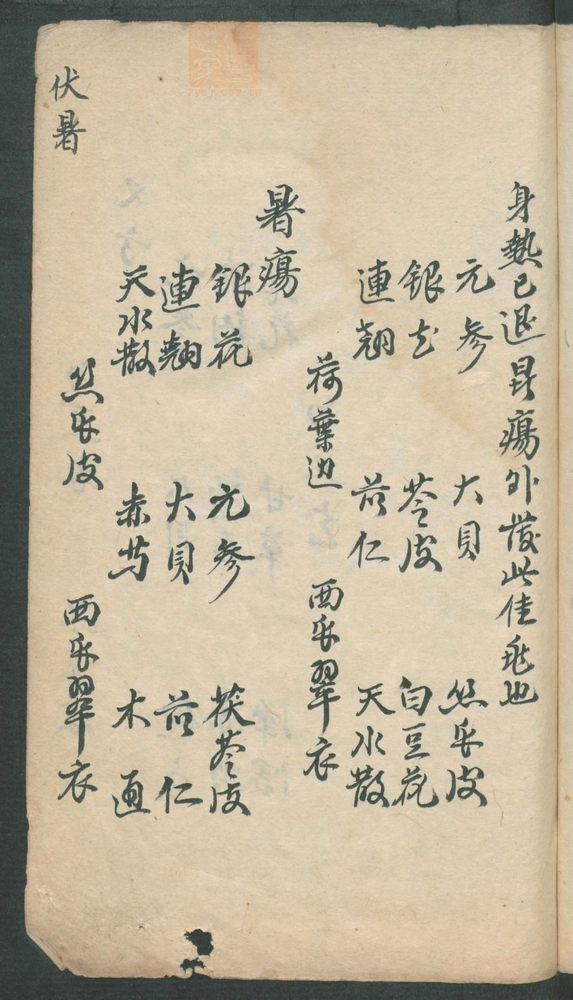 身熱已退暑瘍外發此佳兆也
元参 大貝 絲瓜皮
銀花 苓皮 白豆花
連翹 苡仁 天水散
荷葉边 西瓜翠衣
暑瘍
銀花 元参 茯苓皮
連翹 大貝 苡仁
天水散 赤芍 木通
丝瓜皮 西瓜翠衣
伏暑